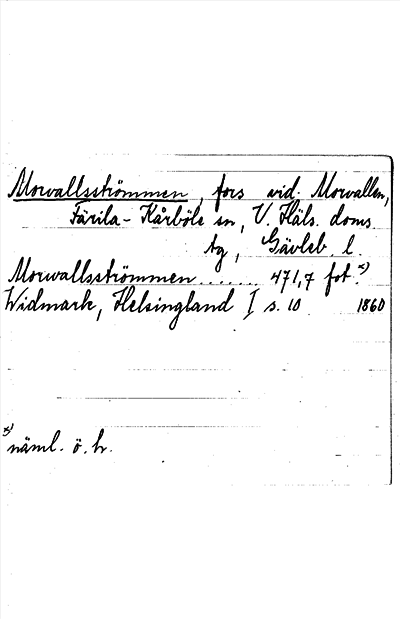 Morvallsströmmen, fors vid Morvallen,
Färila-Kårböle sn, V. Häls. doms
tg, Gävleb. l.
Morvallsströmmen ....... 471,7 fot x)
Widmark, Helsingland I s. 10 1860
x) näml. ö. h.